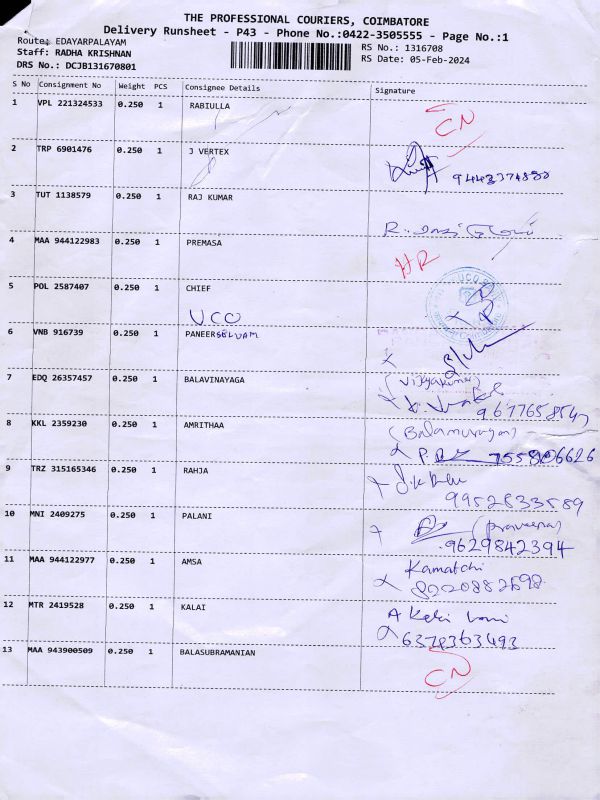 THE PROFESSIONAL COURIERS, COIMBATORE
Delivery Runsheet - P43 - Phone No.:0422-3505555 - Page No.:1
Route: EDAYARPALAYAM
Staff: RADHA KRISHNAN
DRS No.: DCJB131670801
RS No.: 1316708
RS Date: 05-Feb-2024
S No Consignment No Weight PCS Consignee Details Signature
1 VPL 221324533 0.250 1 RABIULLA CN
2 TRP 6901476 0.250 1 J VERTEX 9443374880
3 TUT 1138579 0.250 1 RAJ KUMAR
4 MAA 944122983 0.250 1 PREMASA HR
5 POL 2587407 0.250 1 CHIEF
UCO
6 VNB 916739 0.250 1 PANEERSELVAM
7 EDQ 26357457 0.250 1 BALAVINAYAGA (Vijayakumar)
8 KKL 2359230 0.250 1 AMRITHAA (Balamurugan)
9 TRZ 315165346 0.250 1 RAHJA
9952833589
10 MNI 2409275 0.250 1 PALANI (Praveena)
9629842394
11 MAA 944122977 0.250 1 AMSA Kamatchi
8220882698
12 MTR 2419528 0.250 1 KALAI
6374363493
13 MAA 943900509 0.250 1 BALASUBRAMANIAN CN